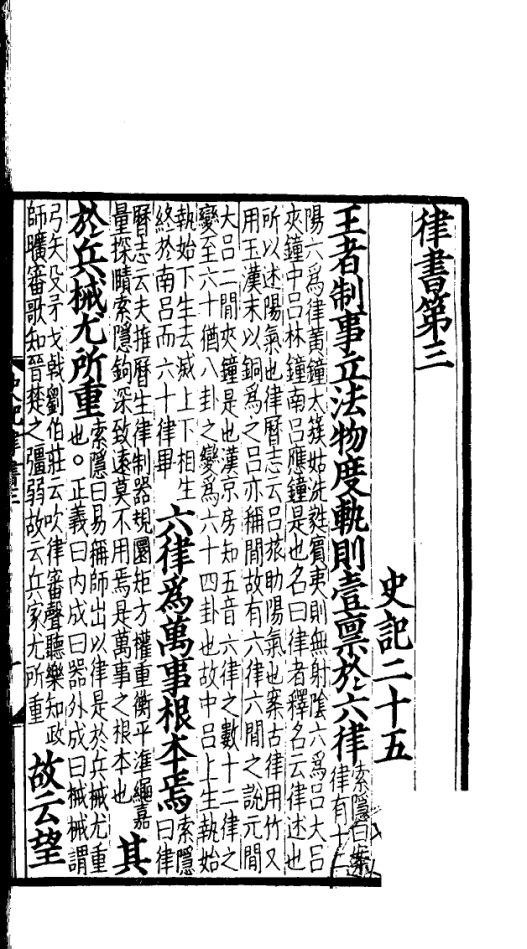 律書第三
史記二十五
王者制事立法物度軌則壹禀於六律
索隱曰案
律有十二
陽六爲律黃鐘太簇姑洗蕤賓夷則無射陰六爲呂大呂
夾鐘中呂林鐘南呂應鐘是也名曰律者釋名云律述也
所以述陽氣也律曆志云呂旅助陽氣也案古律用竹又
用玉漢末以銅爲之呂亦稱閒故有六律六閒之說元閒
大呂二閒夾鐘是也漢京房知五音六律之數十二律之
變至六十猶八卦之變爲六十四卦也故中呂上生執始
執始下生去滅上下相生
終於南呂而六十律畢
六律爲萬事根本焉
索隱
曰律
曆志云夫推曆生律制器規圜矩方權重衡平準繩嘉
量探賾索隱鉤深致遠莫不用焉是萬事之根本也
其
於兵械尤所重
索隱曰易稱師出以律是於兵械尤重
也。正義曰內成曰器外成曰械械謂
弓矢殳矛戈戟劉伯莊云吹律審聲聽樂知政
師曠審歌知晉楚之彊弱故云兵家尤所重
故云望